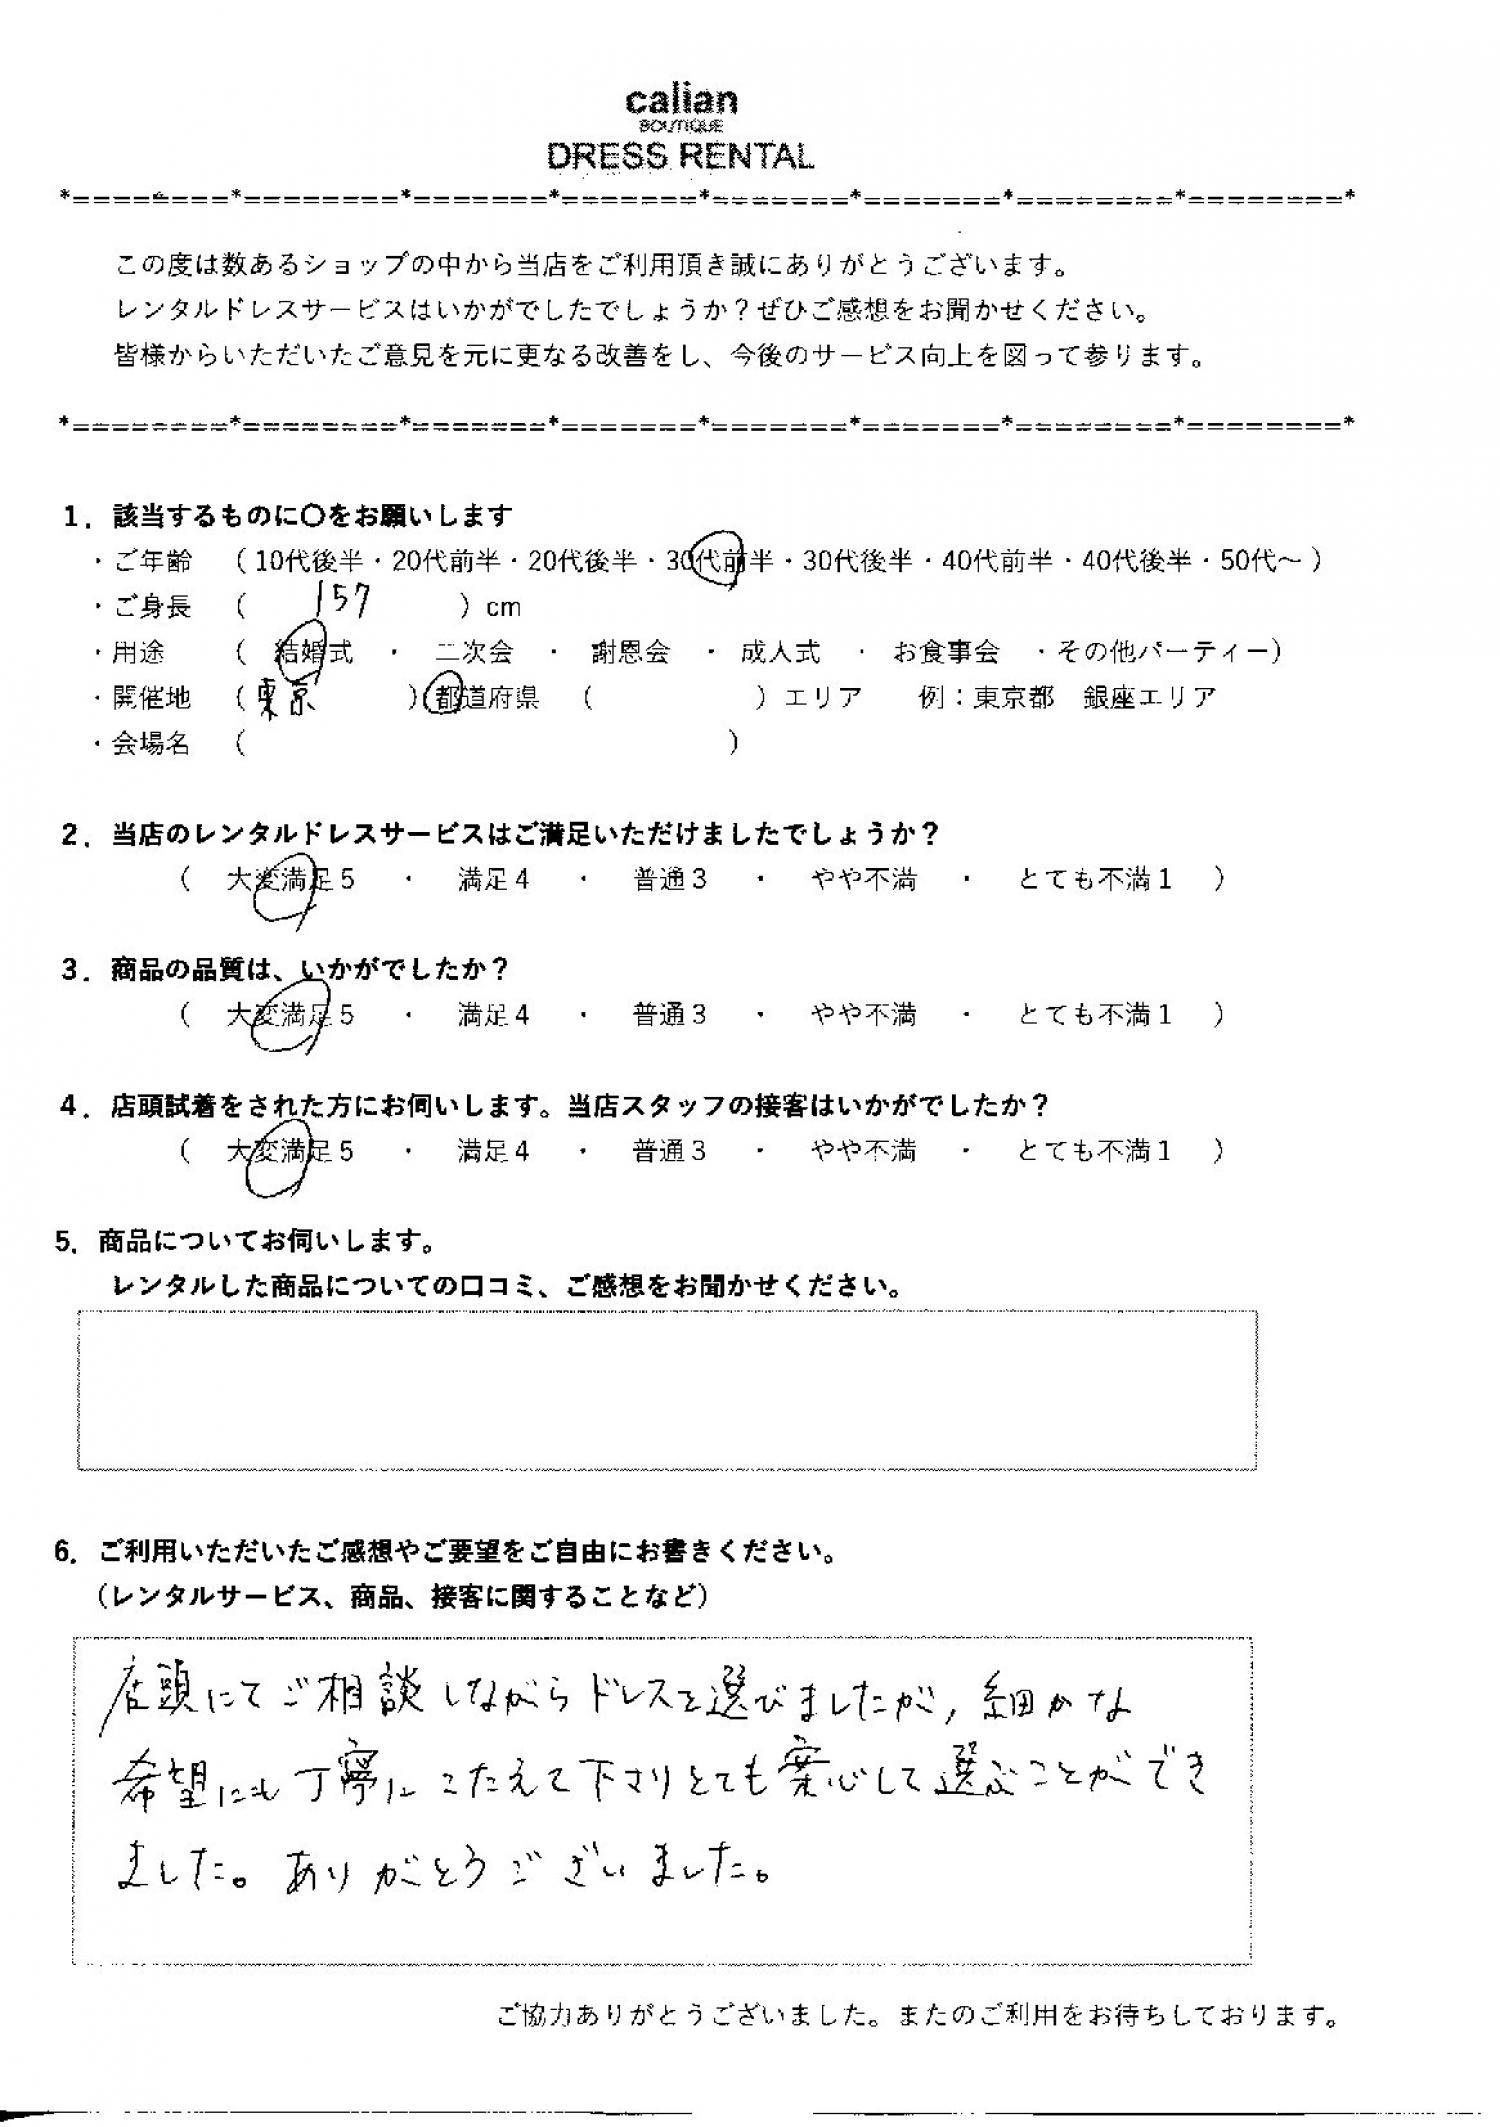 calian
BOUTIQUE
DRESS RENTAL
*========*========*=======*=======*=======*=======*========*========*
この度は数あるショップの中から当店をご利用頂き誠にありがとうございます。
レンタルドレスサービスはいかがでしたでしょうか？ぜひご感想をお聞かせください。
皆様からいただいたご意見を元に更なる改善をし、今後のサービス向上を図って参ります。
*========*========*=======*=======*=======*=======*========*========*
1．該当するものに〇をお願いします
・ご年齢 （ 10代後半・20代前半・20代後半・30代前半・30代後半・40代前半・40代後半・50代～ ）
・ご身長 （ 157 ）cm
・用途 （ 結婚式 ・ 二次会 ・ 謝恩会 ・ 成人式 ・ お食事会 ・その他パーティー）
・開催地 （ 東京 ）都道府県 （ ）エリア 例：東京都 銀座エリア
・会場名 （ ）
2．当店のレンタルドレスサービスはご満足いただけましたでしょうか？
（ 大変満足５ ・ 満足４ ・ 普通３ ・ やや不満 ・ とても不満１ ）
3．商品の品質は、いかがでしたか？
（ 大変満足５ ・ 満足４ ・ 普通３ ・ やや不満 ・ とても不満１ ）
4．店頭試着をされた方にお伺いします。当店スタッフの接客はいかがでしたか？
（ 大変満足５ ・ 満足４ ・ 普通３ ・ やや不満 ・ とても不満１ ）
5．商品についてお伺いします。
レンタルした商品についての口コミ、ご感想をお聞かせください。
6．ご利用いただいたご感想やご要望をご自由にお書きください。
（レンタルサービス、商品、接客に関することなど）
店頭にてご相談しながらドレスを選びましたが, 細かな
希望にも丁寧にこたえて下さりとても安心して選ぶことができ
ました。ありがとうございました。
ご協力ありがとうございました。またのご利用をお待ちしております。